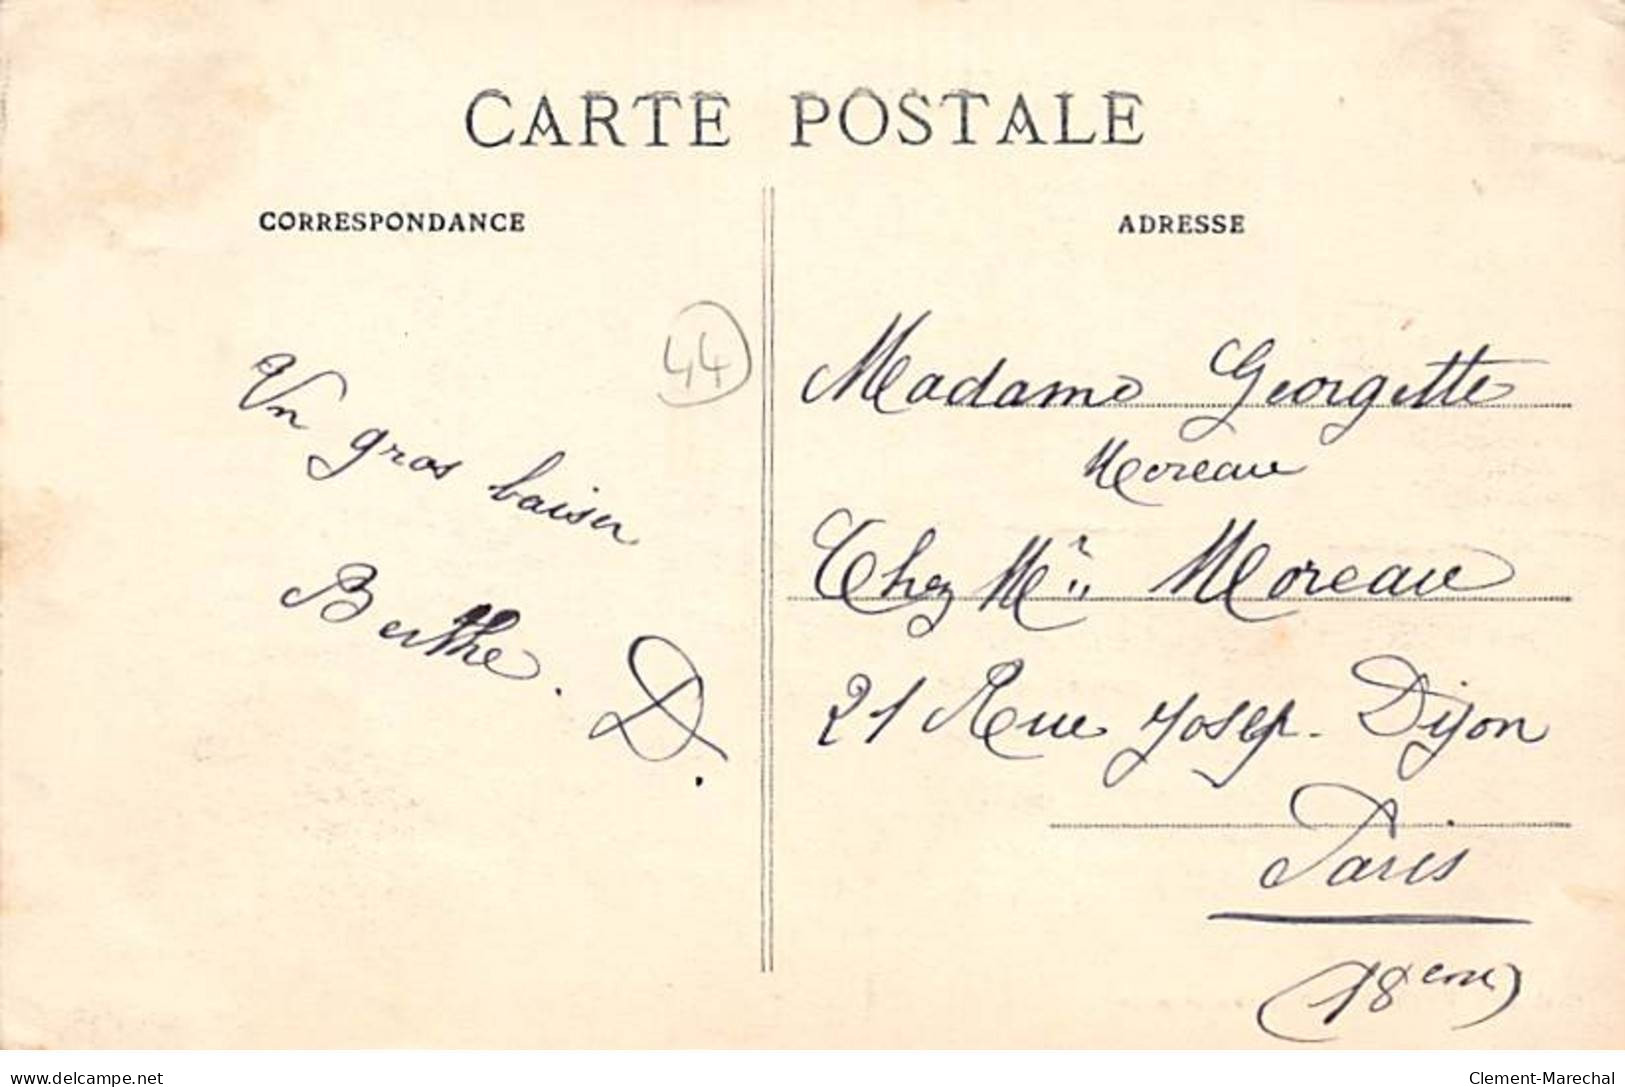 CARTE POSTALE
CORRESPONDANCE
ADRESSE
44
Un gros baiser
Berthe. D.
Madame Georgette
Moreau
Chez Mr Moreau
21 Rue Josep. Dijon
Paris
(18eme)
delcampe.net
Clement-Marechal